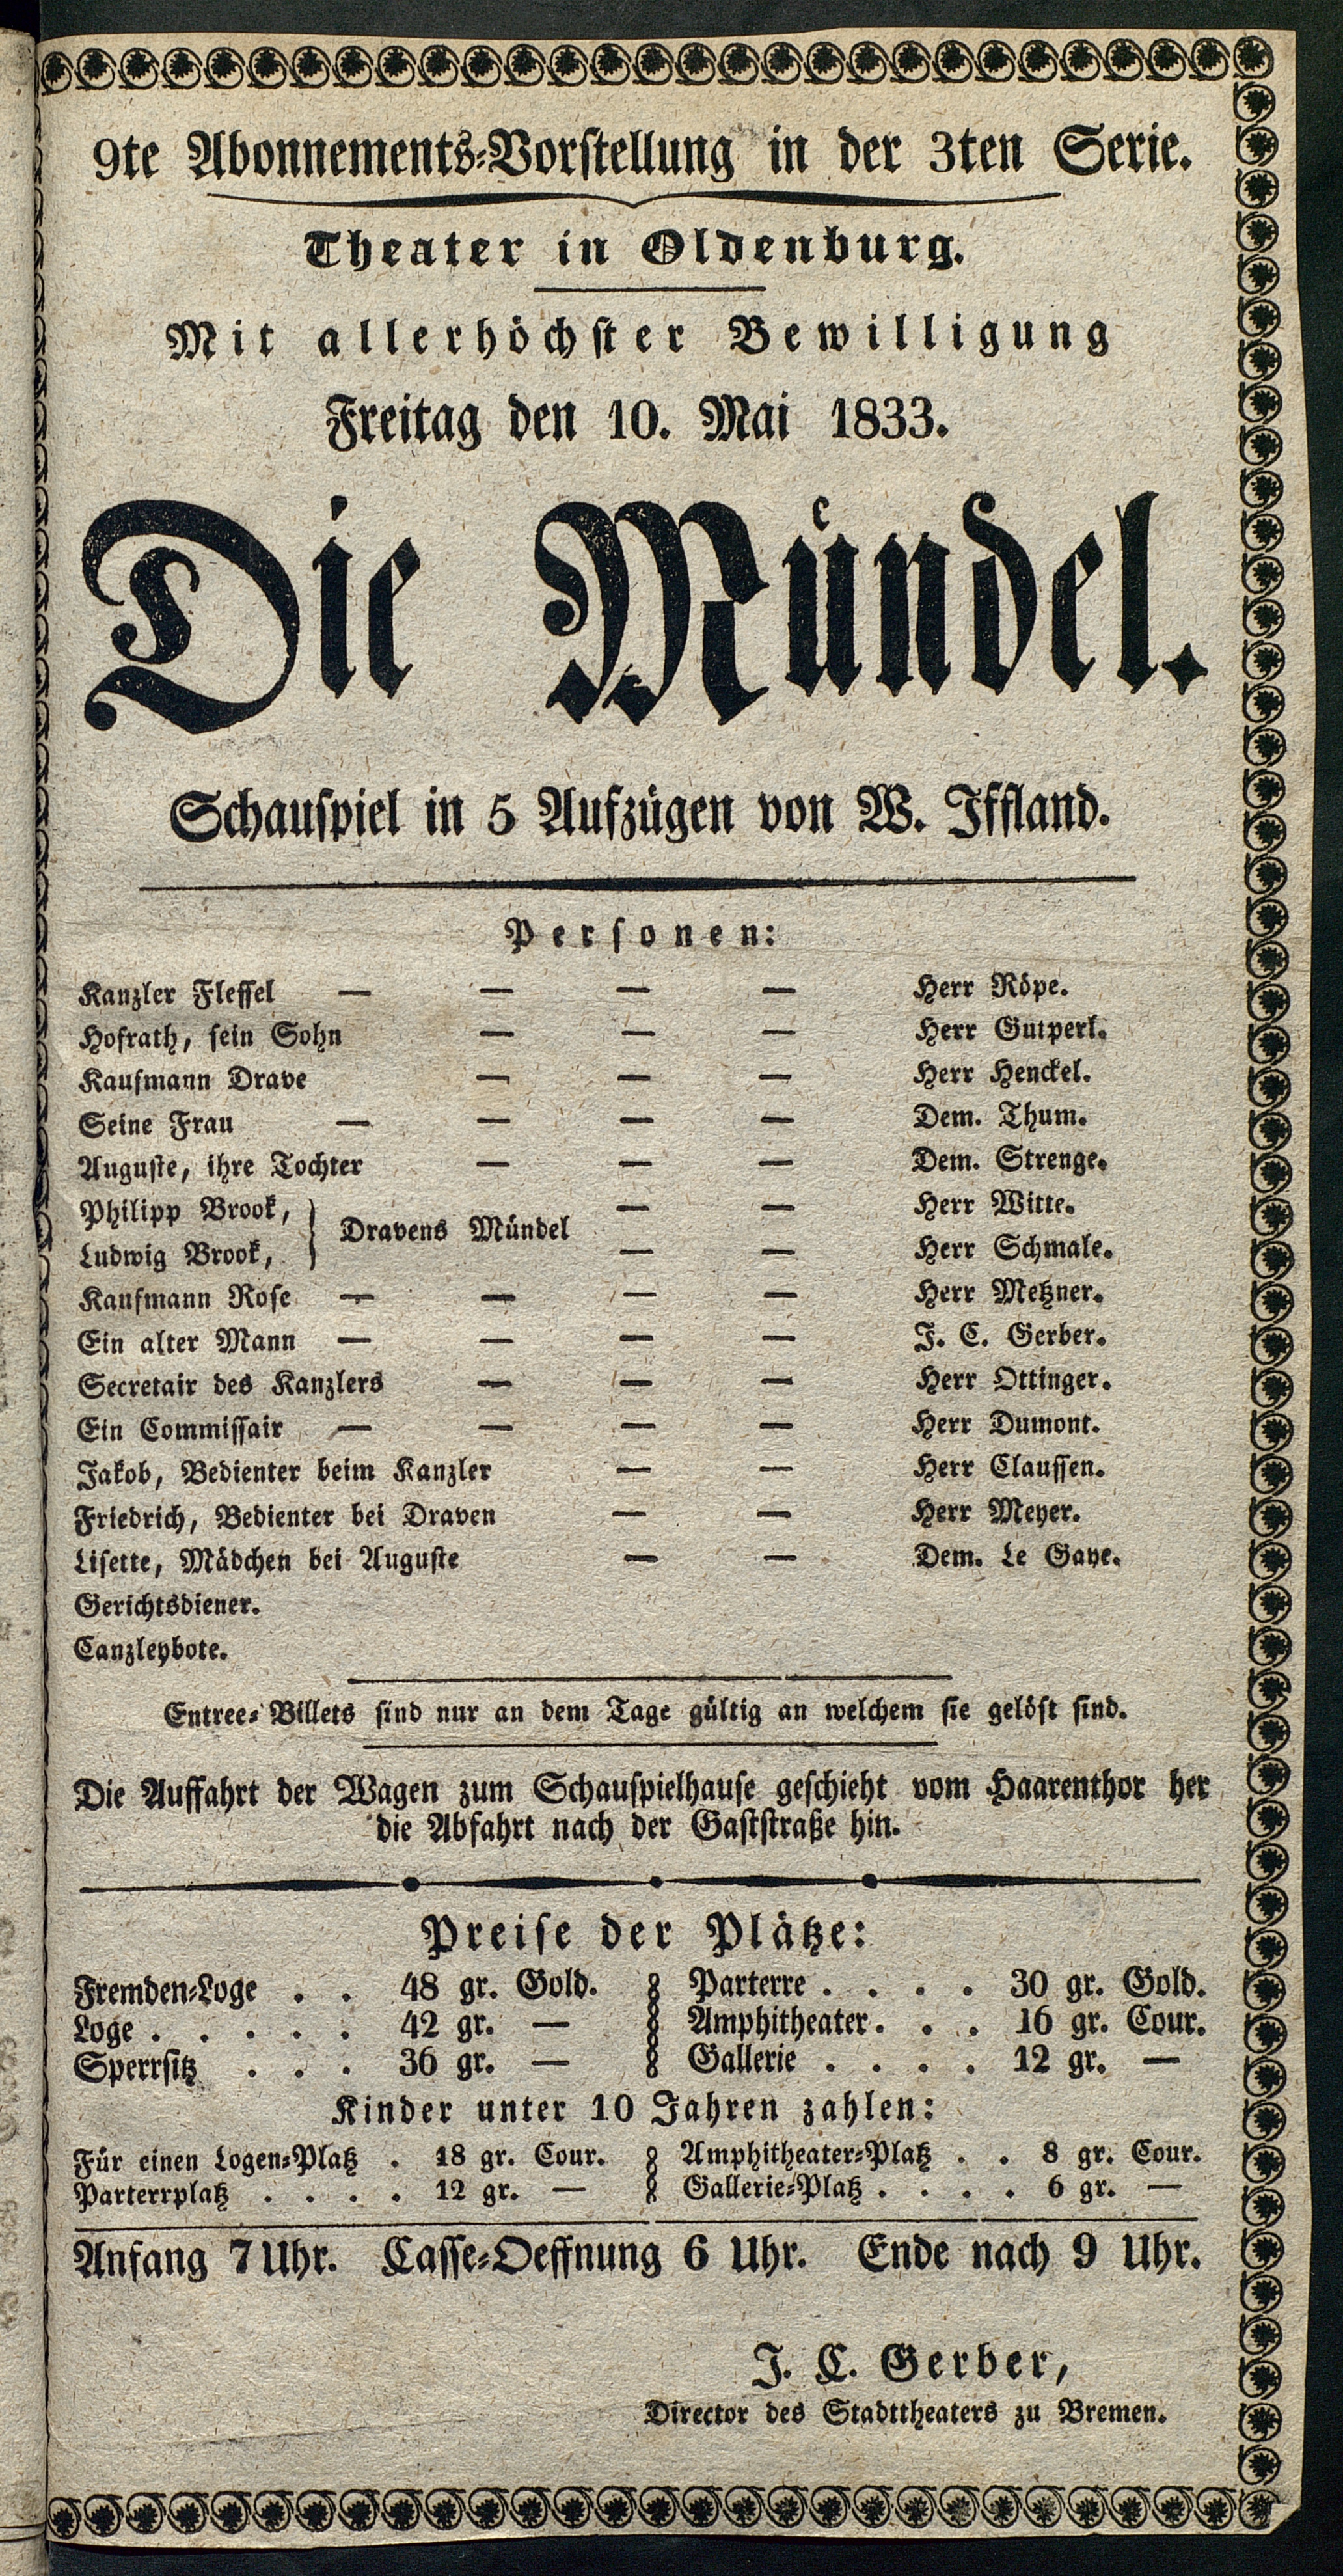 9te Abonnements-Vorstellung in der 3ten Serie.
Theater in Oldenburg.
Mit allerhöchster Bewilligung
Freitag den 10. Mai 1833.
Die Mündel.
Schauspiel in 5 Aufzügen von W. Iffland.
Personen:
Kanzler Flessel — — — — Herr Röpe.
Hofrath, sein Sohn — — — Herr Gutperl.
Kaufmann Drave — — — Herr Henckel.
Seine Frau — — — — Dem. Thum.
Auguste, ihre Tochter — — — Dem. Strenge.
Philipp Brook, } Dravens Mündel — — Herr Witte.
Ludwig Brook, — — Herr Schmale.
Kaufmann Rose — — — — Herr Metzner.
Ein alter Mann — — — — J. C. Gerber.
Secretair des Kanzlers — — — Herr Ottinger.
Ein Commissair — — — — Herr Dumont.
Jakob, Bedienter beim Kanzler — — Herr Claussen.
Friedrich, Bedienter bei Draven — — Herr Meyer.
Lisette, Mädchen bei Auguste — — Dem. Le Gaye.
Gerichtsdiener.
Canzleybote.
Entree-Billets sind nur an dem Tage gültig an welchem sie gelöst sind.
Die Auffahrt der Wagen zum Schauspielhause geschieht vom Haarenthor her
die Abfahrt nach der Gaststraße hin.
Preise der Plätze:
Fremden-Loge . . 48 gr. Gold. Parterre . . . . 30 gr. Gold.
Loge . . . . . 42 gr. — Amphitheater . . . 16 gr. Cour.
Sperrsitz . . . 36 gr. — Gallerie . . . . 12 gr. —
Kinder unter 10 Jahren zahlen:
Für einen Logen-Platz . 18 gr. Cour. Amphitheater-Platz . . 8 gr. Cour.
Parterrplatz . . . . 12 gr. — Gallerie-Platz . . . . 6 gr. —
Anfang 7 Uhr. Casse-Oeffnung 6 Uhr. Ende nach 9 Uhr.
J. C. Gerber,
Director des Stadttheaters zu Bremen.